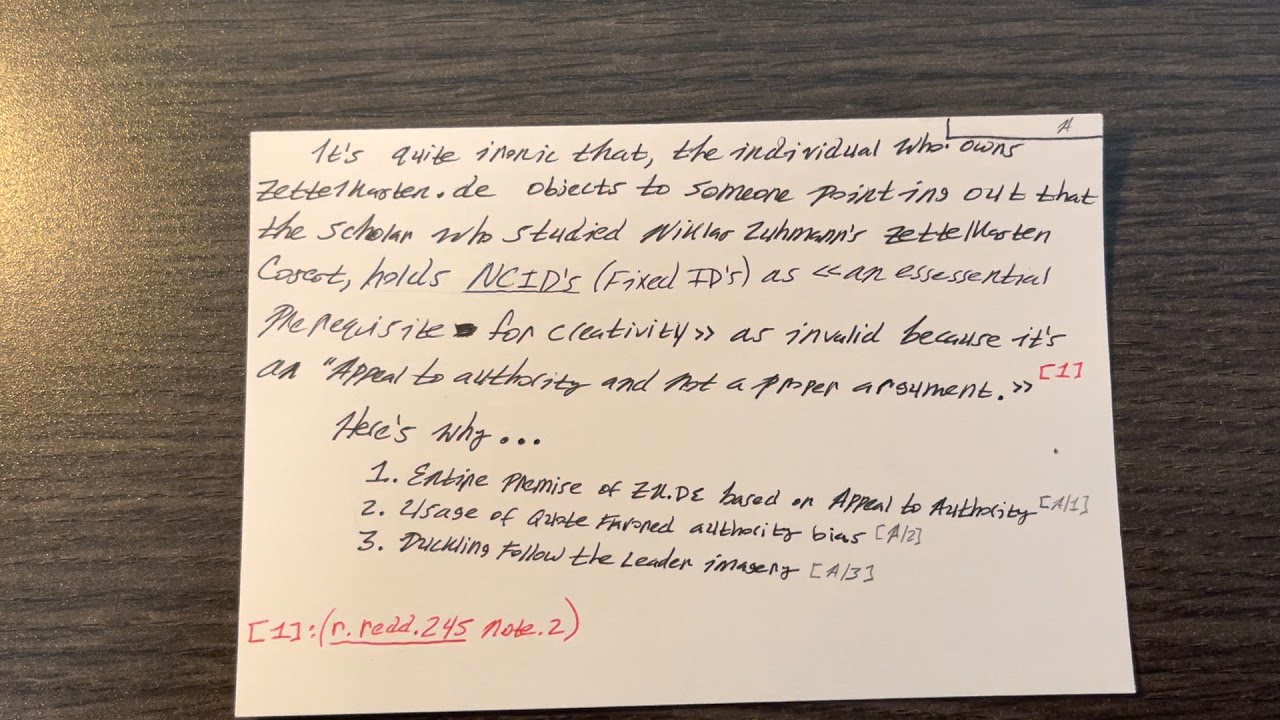 A
It's quite ironic that, the individual who owns
zettelkasten.de objects to someone pointing out that
the scholar who studied Niklas Luhmann's zettelkasten
, holds NCID's (Fixed ID's) as «an essessential
prerequisite for creativity» as invalid because it's
an "Appeal to authority and not a proper argument.» [1]
Here's why...
1. Entire Premise of ZK.DE based on Appeal to Authority [A/1]
2. Usage of Quote Favored authority bias [A/2]
3. Duckling Follow the Leader imagery [A/3]
[1]:(r.redd.245 note.2)